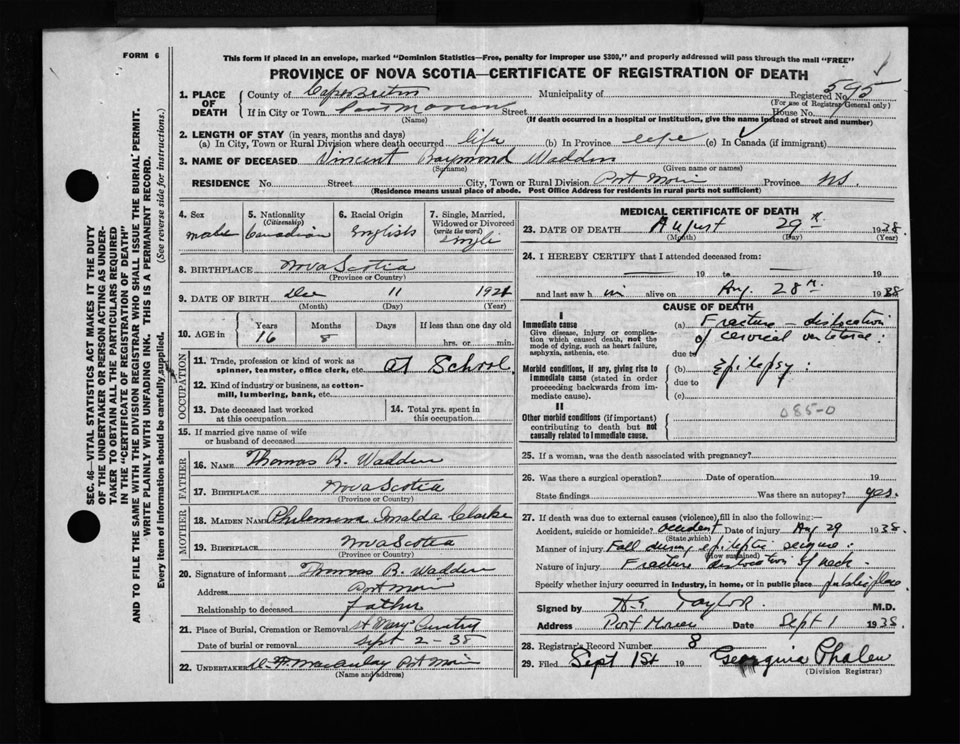 FORM 6
This form if placed in an envelope, marked "Dominion Statistics—Free, penalty for improper use $300," and properly addressed will pass through the mail "FREE"
PROVINCE OF NOVA SCOTIA—CERTIFICATE OF REGISTRATION OF DEATH
1. PLACE OF DEATH
County of Cape Breton Municipality of Registered No. 595
(For use of Registrar General only)
If in City or Town Port Morien Street House No.
(Name) (If death occurred in a hospital or institution, give the name instead of street and number)
2. LENGTH OF STAY (in years, months and days)
(a) In City, Town or Rural Division where death occurred life (b) In Province life (c) In Canada (if immigrant)
3. NAME OF DECEASED Vincent Raymond Wadden
(Surname) (Given name or names)
RESIDENCE No. Street City, Town or Rural Division Port Morien Province NS.
(Residence means usual place of abode. Post Office Address for residents in rural parts not sufficient)
SEC. 46—VITAL STATISTICS ACT MAKES IT THE DUTY
OF THE UNDERTAKER OR PERSON ACTING AS UNDER-
TAKER TO OBTAIN ALL THE PARTICULARS REQUIRED
IN THE "CERTIFICATE OF REGISTRATION OF DEATH"
AND TO FILE THE SAME WITH THE DIVISION REGISTRAR WHO SHALL ISSUE THE BURIAL PERMIT.
WRITE PLAINLY WITH UNFADING INK. THIS IS A PERMANENT RECORD.
Every item of information should be carefully supplied. (See reverse side for instructions.)
4. Sex
male
5. Nationality
(Citizenship)
Canadian
6. Racial Origin
English
7. Single, Married, Widowed or Divorced
(write the word)
Single
8. BIRTHPLACE Nova Scotia
(Province or Country)
9. DATE OF BIRTH Dec 11 1921
(Month) (Day) (Year)
10. AGE in Years Months Days If less than one day old
16 8 hrs. or min.
OCCUPATION
11. Trade, profession or kind of work as
spinner, teamster, office clerk, etc. At School
12. Kind of industry or business, as cotton-
mill, lumbering, bank, etc.
13. Date deceased last worked
at this occupation
14. Total yrs. spent in
this occupation
15. If married give name of wife
or husband of deceased
FATHER
16. NAME Thomas B. Wadden
17. BIRTHPLACE Nova Scotia
(Province or Country)
MOTHER
18. MAIDEN NAME Philemena Imalda Clarke
19. BIRTHPLACE Nova Scotia
(Province or Country)
20. Signature of informant Thomas B. Wadden
Address Port Morien
Relationship to deceased father
21. Place of Burial, Cremation or Removal St Marys Cemetery
Date of burial or removal Sept 2 - 38
22. UNDERTAKER Macaulay Port Morien
(Name and address)
MEDICAL CERTIFICATE OF DEATH
23. DATE OF DEATH August 29th 1938.
(Month) (Day) (Year)
24. I HEREBY CERTIFY that I attended deceased from:
19 to 19
and last saw him alive on Aug. 28th 1938
CAUSE OF DEATH
I
Immediate cause
Give disease, injury or complica-
tion which caused death, not the
mode of dying, such as heart failure,
asphyxia, asthenia, etc.
(a) Fracture - dislocation
of cervical vertebrae.
due to
Morbid conditions, if any, giving rise to
immediate cause (stated in order
proceeding backwards from im-
mediate cause).
(b) Epilepsy.
due to
(c)
085-0
II
Other morbid conditions (if important)
contributing to death but not
causally related to immediate cause.
25. If a woman, was the death associated with pregnancy?
26. Was there a surgical operation? Date of operation 19
State findings Was there an autopsy? yes.
27. If death was due to external causes (violence), fill in also the following:—
Accident, suicide or homicide? accident Date of injury Aug 29 1938.
(State which)
Manner of injury Fall during epileptic seizure.
(How sustained)
Nature of injury Fracture dislocation of neck.
Specify whether injury occurred in industry, in home, or in public place public place
Signed by H.E. Taylor. M.D.
Address Port Morien Date Sept 1 1938.
28. Registrar's Record Number 8
29. Filed Sept 1st 19 Georgina Phalen
(Division Registrar)